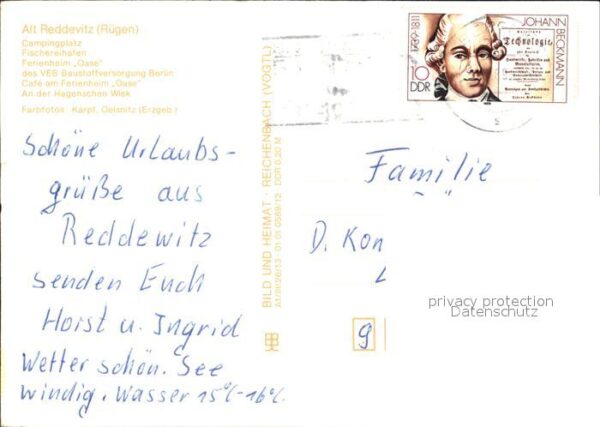 Alt Reddevitz (Rügen)
Campingplatz
Fischereihafen
Ferienheim „Oase“
des VEB Baustoffversorgung Berlin
Café am Ferienheim „Oase“
An der Hagenschen Wiek
Farbfotos: Karpf, Oelsnitz (Erzgeb.)
Schöne Urlaubs-
grüße aus
Reddewitz
senden Euch
Horst u. Ingrid
Wetter schön. See
windig. Wasser 15°C-16°C.
BILD UND HEIMAT · REICHENBACH (VOGTL)
01 01 0569/12 DDR 0,20 M
1739-1811
JOHANN BECKMANN
Technologie
10
DDR
Familie
D. Kon
9
privacy protection
Datenschutz